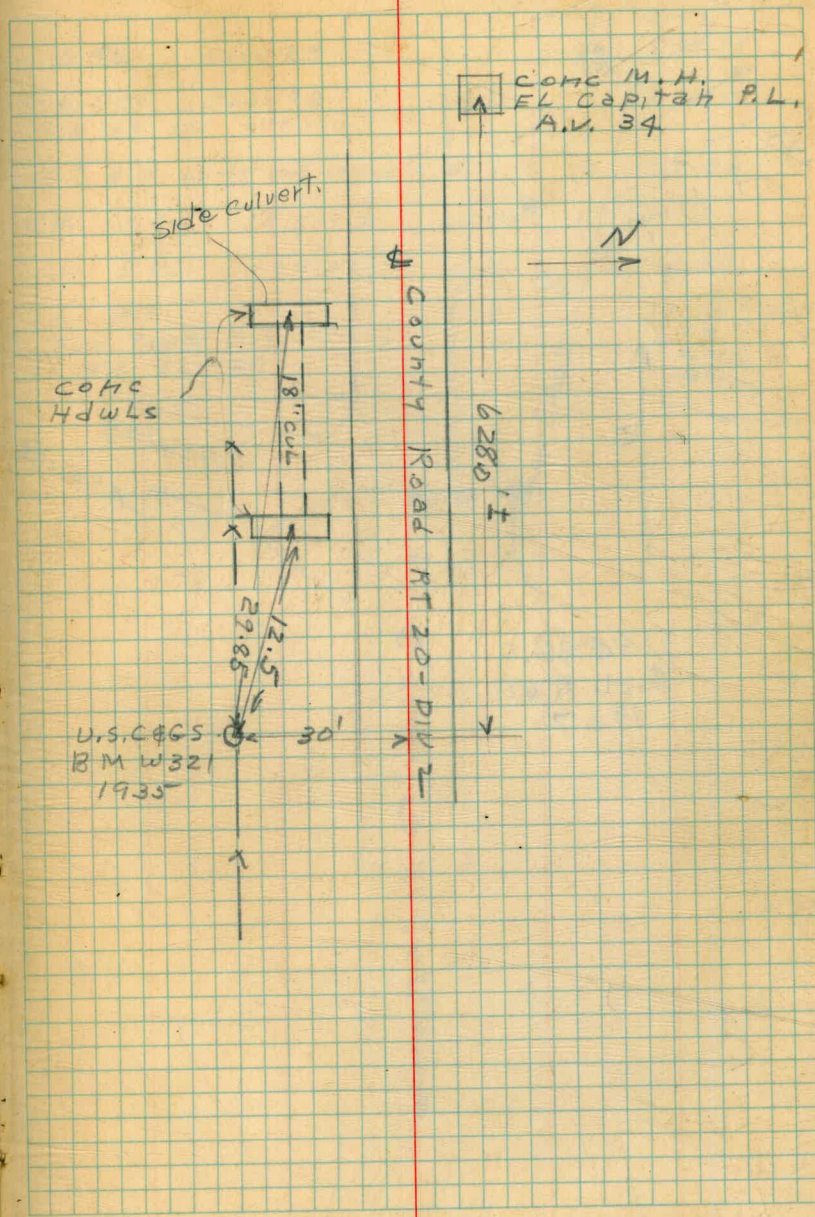 CONC M.H.
EL CAPITAN P.L.
A.V. 34
Side culvert.
N
CONC
HdwLs
18" CUL
℄ County Road RT 20-DIV 2
6280'±
29.85
12.5
30'
U.S.C&GS
B M W321
1935